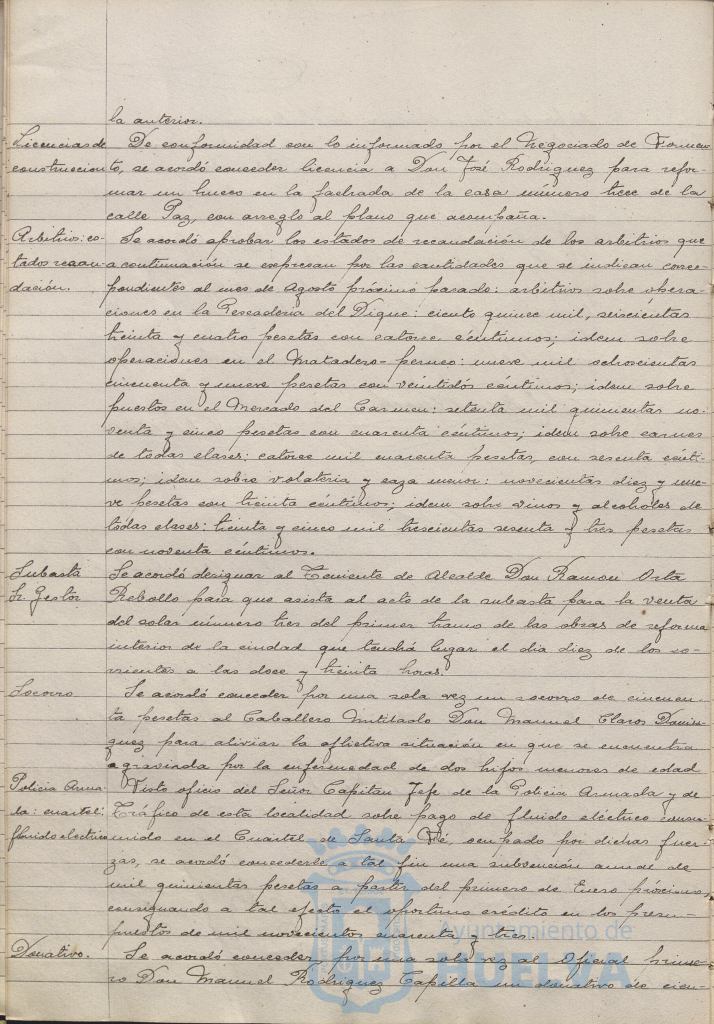 la anterior.
Licencias de construcción
De conformidad con lo informado por el Negociado de Fomen-
to, se acordó conceder licencia a Don José Rodriguez para refor-
mar un hueco en la fachada de la casa número trece de la
calle Paz, con arreglo al plano que acompaña.
Arbitrios: es-
tados recau-
dación.
Se acordó aprobar los estados de recaudación de los arbitrios que
a continuación se expresan por las cantidades que se indican corres-
pondientes al mes de Agosto próximo pasado: arbitrios sobre opera-
ciones en la Pescadería del Dique: ciento quince mil, seiscientas
treinta y cuatro pesetas con catorce céntimos; idem sobre
operaciones en el Matadero-perneo: nueve mil ochocientas
cincuenta y nueve pesetas con veintidós céntimos; idem sobre
puestos en el Mercado del Carmen: setenta mil quinientas no-
venta y cinco pesetas con cuarenta céntimos; idem sobre carnes
de todas clases: catorce mil cuarenta pesetas, con sesenta cénti-
mos; idem sobre volateria y caza menor: novecientas diez y nue-
ve pesetas con treinta céntimos; idem sobre vinos y alcoholes de
todas clases: treinta y cinco mil trescientas sesenta y tres pesetas
con noventa céntimos.
Subasta
Sr. Gestor
Se acordó designar al Teniente de Alcalde Don Ramon Orta
Rebollo para que asista al acto de la subasta para la venta
del solar número tres del primer tramo de las obras de reforma
interior de la ciudad que tendrá lugar el dia diez de los co-
rrientes a las doce y treinta horas.
Socorro
Se acordó conceder por una sola vez un socorro de cincuen-
ta pesetas al Caballero Mutilado Don Manuel Claros Domin-
guez para aliviar la aflictiva situación en que se encuentra
agravada por la enfermedad de dos hijos menores de edad
Policia Arma-
da: cuartel:
fluido electrico
Visto oficio del Señor Capitan Jefe de la Policia Armada y de
Tráfico de esta localidad sobre pago de fluido eléctrico consu-
mido en el Cuartel de Santa Fé, ocupado por dichas fuer-
zas, se acordó concederle a tal fin una subvención anual de
mil quinientas pesetas a partir del primero de Enero próximo,
consignando a tal efecto el oportuno crédito en los presu-
puestos de mil novecientos cuarenta y tres.
Donativo.
Se acordó conceder por una sola vez al Oficial prime-
ro Don Manuel Rodriguez Capilla un donativo de cien-
Ayuntamiento de
HUELVA